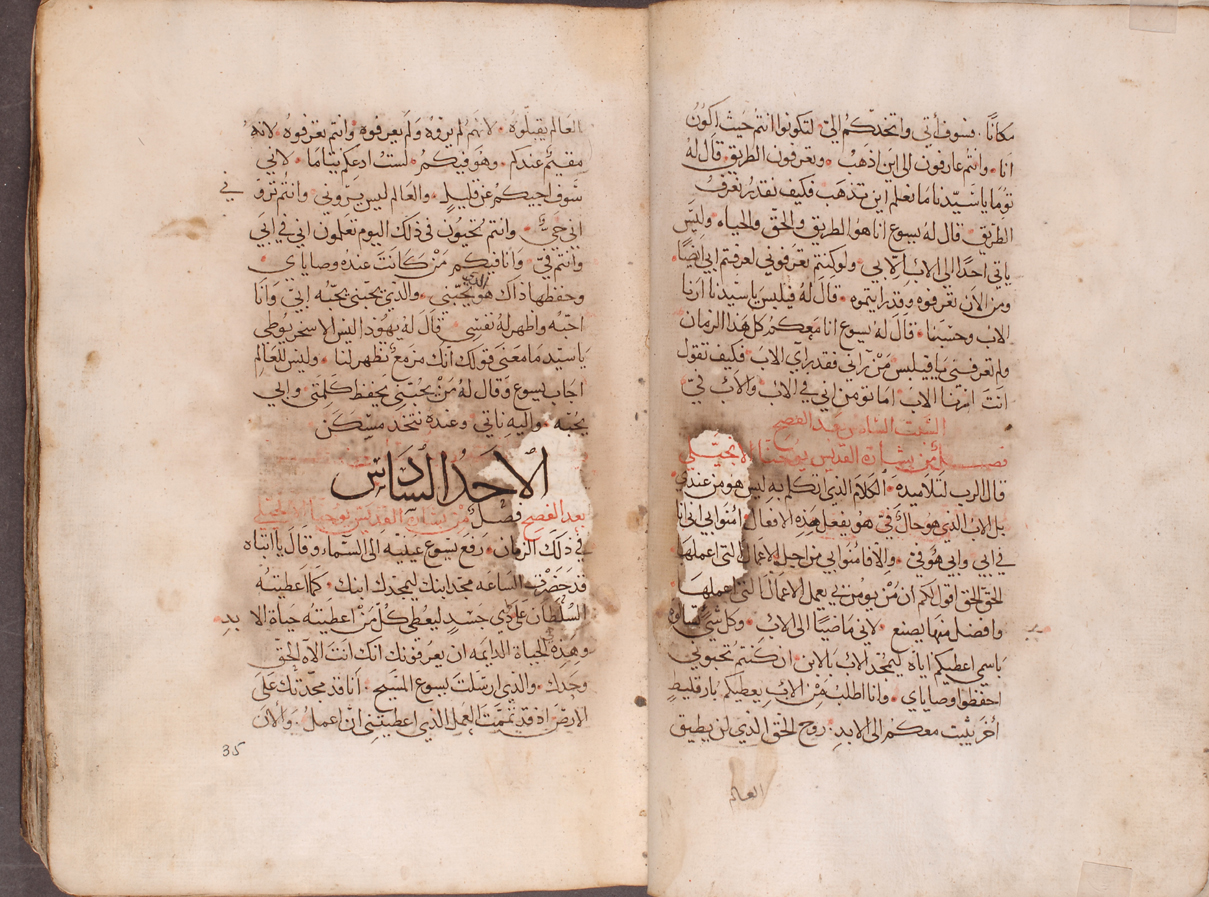 مكانًا . فسوف أتي واتخدكم اليّ . لتكونوا انتم حيث اكون
انا . وانتم عارفون الى اين اذهب . وتعرفون الطريق . قال له
توما يا سيّدنا ما نعلم اين تذهب فكيف نقدر نعرف
الطريق . قال له يسوع انا هو الطريق والحق والحياه . وليس
ياتي احدًا الى الاب الا بي . ولو كنتم تعرفوني لعرفتم ابي ايضًا .
ومن الآن تعرفوه وقد رايتموه . قال له فيلبس يا سيدنا ارنا
الاب وحسبنا . قال له يسوع انا معكم كل هذا الزمان
ولم تعرفني يا فيلبس من رآني فقد راي الاب . فكيف تقول
انت ارنا الاب اما تومن اني في الاب والاب فيّ
السبت السادس بعد الفصح
فصل من بشاره القديس يوحنا الانجيلي
قال الرب لتلاميده . الكلام الذي اتكلم به ليس هو من عندي
بل الاب الذي هو حال فيّ هو يفعل هذه الافعال امنوا بي اني انا
في ابي وابي هو فيّ . والا فامنوا بي من اجل الاعمال التي اعملها
الحق الحق اقول لكم ان من يومن بي يعمل الاعمال التي اعملها
وافضل منها يصنع . لاني ماضيًا الى الاب . وكل شي
باسمي اعطيكم اياه ليتمجد الاب بالابن . ان كنتم تحبوني
احفظوا وصاياي . وانا اطلب من الاب يعطيكم بارقليط
اخر يثبت معكم الى الابد . روح الحق الذي لن يطيق
العالم
العالم يقبلوه . لانهم لم يروه ولم يعرفوه وانتم تعرفوه . لانه
مقيم عندكم . وهو فيكم . لست ادعكم يتاما . لاني
سوف اجيكم عن قليل . والعالم ليس يروني . وانتم تروني
اني حيّ . وانتم تحيون في ذلك اليوم تعلمون اني في ابي
وانتم فيّ . وانا فيكم من كانت عنده وصاياي .
وحفظها ذاك هو الذي يحبني . والذي يحبني يحبه ابي . وانا
احبه واظهر له نفسي . قال له يهودا ليس الاسخريوطي
يا سيد ما معنى قولك انك مزمع تظهر لنا . وليس للعالم
اجاب يسوع وقال له من يحبني يحفظ كلمتي وابي
يحبه . واليه ناتي وعنده نتخد مسكن
الاحد السادس
بعد الفصح فصل من بشارة القديس يوحنا الانجيلي
في ذلك الزمان . رفع يسوع عينيه الى السما . وقال يا ابتاه
قد حضرت الساعه مجد ابنك ليمجدك ابنك . كما اعطيته
السلطان على ذي جسد ليعطي كل من اعطيته حياة الابد
وهذه الحياة الدايمه ان يعرفونك انك انت الاه الحق
وحدك . والذي ارسلت يسوع المسيح . انا قد مجدتك على
الارض اذ قد تممت العمل الذي اعطيتني ان اعمل . والان
35